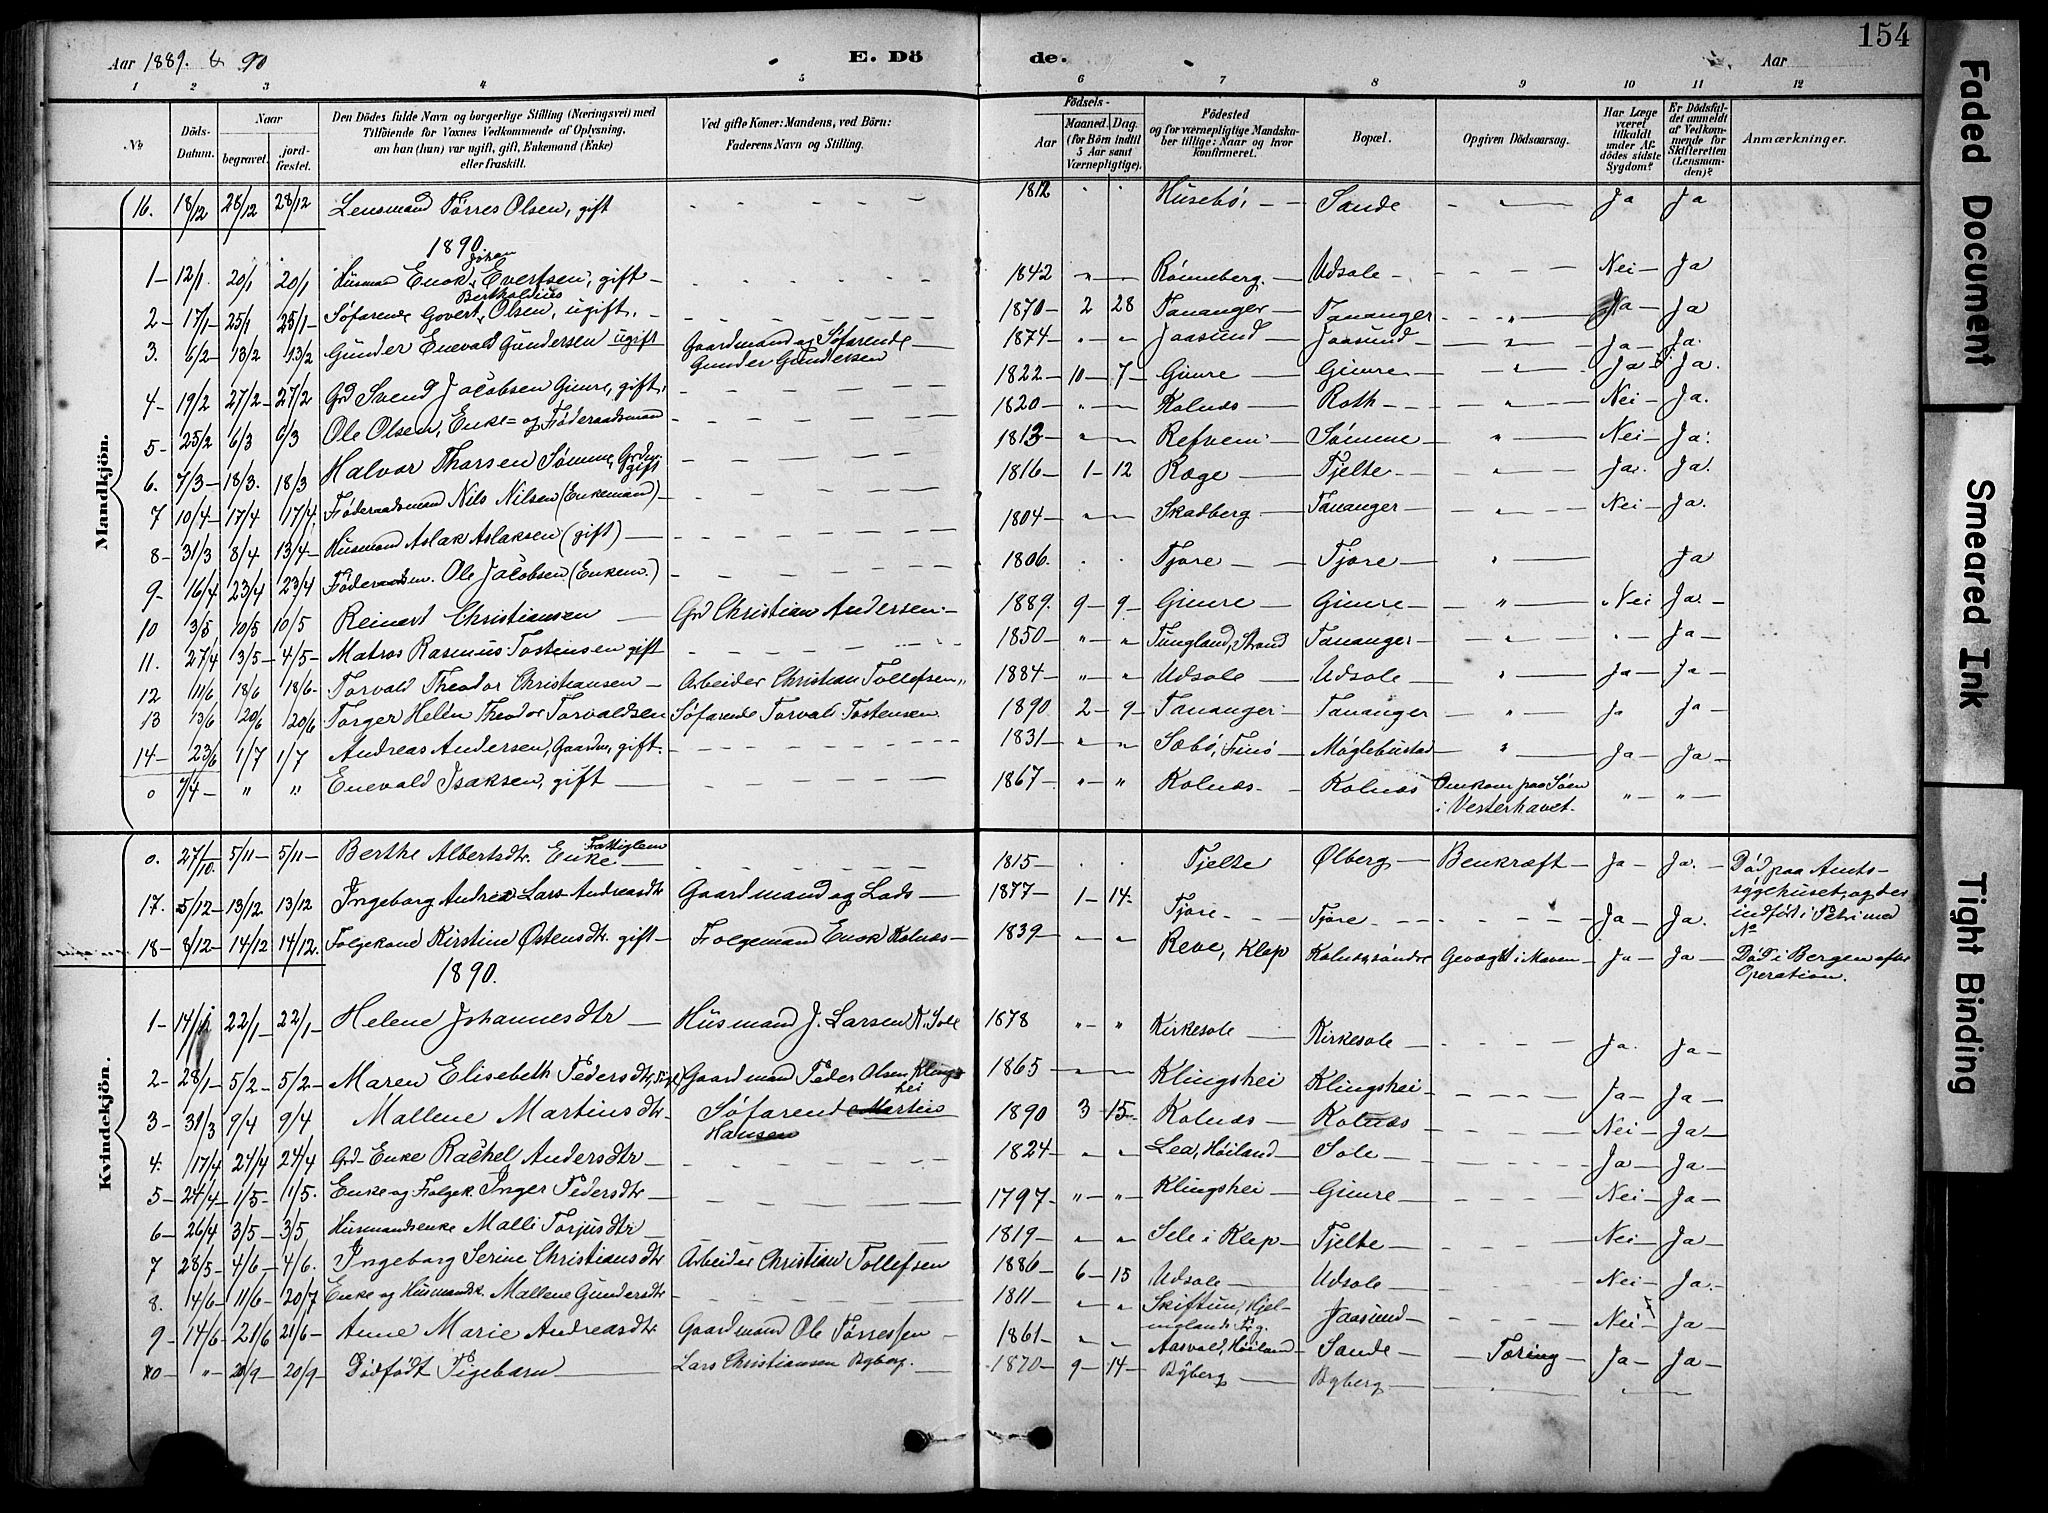 154
Aar 1889. & 90
E. Dö
de.
Aar
1 2 3 4 5 6 7 8 9 10 11 12
No
Döds-Datum.
Naar
begravet.
jordfæstet.
Den Dödes fulde Navn og borgerlige Stilling (Næringsvei) med
Tilföiende for Voxnes Vedkommende af Oplysning,
om han (hun) var ugift, gift, Enkemand (Enke)
eller fraskilt.
Ved gifte Koner: Mandens, ved Börn:
Faderens Navn og Stilling.
Födsels-
Aar
Maaned. Dag.
(for Börn indtil 5 Aar samt Værnepligtige).
Födested
og for værnepligtige Mandskaber tillige: Naar og hvor konfirmeret.
Bopæl.
Opgiven Dödsaarsag.
Har Læge været tilkaldt under Afdödes sidste Sygdom?
Er Dödsfaldet anmeldt af Vedkommende for Skifteretten (Lensmanden)?
Anmærkninger.
Mandkjön.
16. 18/12 28/12 28/12 Lensmand Tørres Olsen, gift 1812 Husebø, Sande " Ja Ja
1890.
1 - 12/1 20/1 20/1 Husmand Enok Johan Evertsen, gift 1842 " Rønneberg. Udsole Nei Ja
2 - 17/1 25/1 25/1 Søfarende Govert Bertholdius Olsen, ugift. 1870 2 28 Tananger Tananger " Ja Ja
3. 6/2 13/2 13/2 Gunder Enevald Gundersen ugift Gaardmand og Søfarende Gunder Gundersen 1874 " " Jaasund Jaasund " Ja Ja.
4 - 19/2 27/2 27/2 Grd Svend Jacobsen Gimre, gift. 1822 10 7 Gimre Gimre " Ja Ja.
5 - 25/2 6/3 6/3 Ole Olsen, Enke= og Føderaadsmand 1820 " Kolnæs Roth " Nei Ja.
6. 7/3 18/3. 18/3 Halvor Tharsen Sømme, gift 1813 " Refvem Sømme " Nei Ja.
7 10/4 17/4 17/4. Føderaadsmand Nils Nilsen (Enkemand) 1816 1 12 Ræge Tjelte " Ja. Ja.
8 - 31/3 8/4 13/4 Husmand Aslak Aslaksen (gift) 1804 " " Skadberg Tananger " Nei Ja.
9 - 16/4 23/4 23/4 Føderaadsm. Ole Jacobsen (Enkem.) 1806. Tjore Tjore " Ja
10 3/5 10/5 10/5 Reinert Christiansen Grd Christian Andersen. 1889. 9 9 Gimre Gimre " Nei Ja.
11. 27/4 3/5 4/5 Matros Rasmus Tostensen gift 1850 " " Tungland, Strand Tananger " " Ja
12 11/6 18/6 18/6 Torvald Theodor Christiansen Arbeider Christian Tollefsen 1884 " " Udsole Udsole " Ja Ja
13 13/6 20/6 20/6 Torger Helin Theodor Torvaldsen Søfarende Torvald Tostensen 1890 2 9 Tananger Tananger " Ja Ja
14 - 23/6 1/7 1/7 Andreas Andersen, Gaardm, gift. 1831 " " Sæbø, Finø Møglebustad " Ja Ja
0 7/4 " " Enevald Isaksen, gift 1867 " " Kolnæs Kolnæs Omkom paa Søen i Vesterhavet. " "
Kvindekjön.
0. 27/10 5/11 5/11 Berthe Albertsdtr. Enke Fattiglem 1815 Tjelte Ølberg Benkræft Ja Ja. Død paa Amtssygehuset, og der indført i Petri med No
17. 5/12 13/12 13/12 Ingeborg Andrea Lars Andreasdtr Gaardmand og Lods 1877 1 14 Tjore Tjore Ja Ja.
18 - 8/12 14/12 14/12. Folgekone Kirstine Østensdtr. gift Folgemand Enok Kolnæs 1839 " " Reve, Klep Kolnæs søndre Gevægst i Maven Ja Ja Død i Bergen efter Operation.
1890.
1 - 14/1 22/1 22/1 Helene Johannesdtr Husmand J. Larsen K. Sole 1878 " " Kirkesole Kirkesole Ja. Ja
2 - 28/1 5/2 5/2 Maren Elisebeth Pedersdtr. Gaardmand Peder Olsen Klingshei 1865 " Klingshei Klingshei Ja Ja
3 - 31/3 9/4 9/4 Mallene Martinsdtr Søfarende Martin Hansen 1890 3 15 Kolnæs Kolnæs Nei Ja
4. 17/4 24/4 24/4 Grd- Enke Rachel Andersdtr 1824 " " Lea, Høiland Sole Ja Ja
5 - 24/4 1/5 1/5. Enke og Folgek. Inger Pedersdtr 1797 " " Klingshei Gimre Nei Ja
6 - 26/4 3/5 3/5 Husmandsenke Malli Torjusdtr 1819 " " Sele i Klep Tjelte Nei Ja
7 28/5 4/6 4/6. Ingeborg Serine Christiansdtr Arbeider Christian Tollefsen 1886 6 15 Udsole Udsole Nei Ja.
8. 14/6 11/6 20/7 Enke og Husmandsk. Mallene Gundersdtr 1811 " " Skiftun, Hjelmelands Prg. Jaasund Nei Ja
9 - 14/6 21/6 21/6 Anne Marie Andreasdtr. Gaardmand Ole Tørressen 1861 " " Aasvald, Høiland Sande Tæring Ja Ja
10 - " 20/9 20/9 Dødfødt Pigebarn Lars Christiansen Byberg. 1870 9 14 Byberg Byberg " "
Faded Document
Smeared Ink
Tight Binding